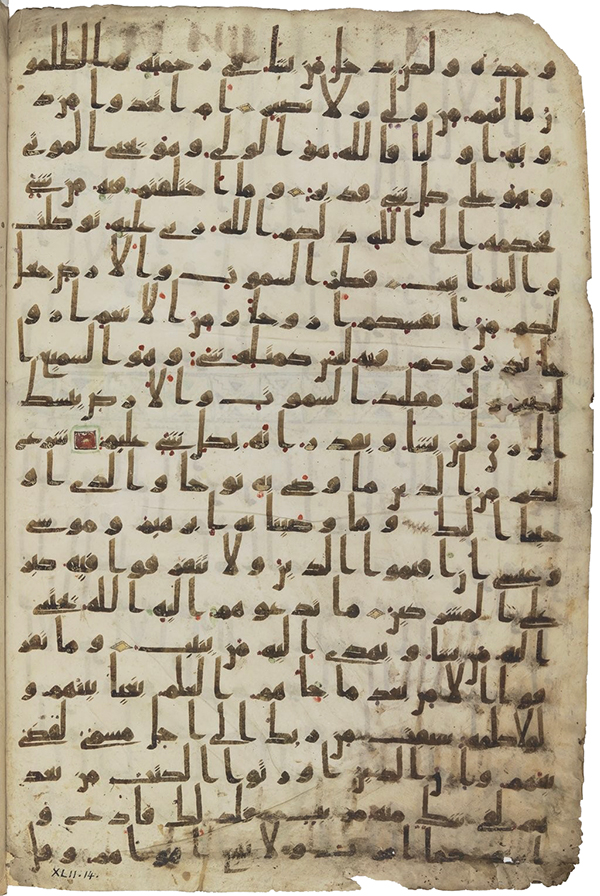 وحده ولكن يدخل من يشا في رحمته والظلمو
ن ما لهم من ولي ولا نصير ام اتخذوا من د
ونه اوليا فالله هو الولي وهو يحيي الموتى
وهو على كل شي قدير وما اختلفتم فيه من شي
فحكمه الى الله ذلكم الله ربي عليه توكلت
واليه انيب فاطر السموت والارض جعل
لكم من انفسكم ازوجا ومن الانعام ازو
جا يذروكم فيه ليس كمثله شي وهو السميع ا
لبصير له مقليد السموت والارض يبسط
الرزق لمن يشا ويقدر انه بكل شي عليم شرع
لكم من الدين ما وصى به نوحا والذي او
حينا اليك وما وصينا به ابرهيم وموسى
وعيسى ان اقيموا الدين ولا تتفرقوا فيه كبر
على المشركين ما تدعوهم اليه الله يجتبي
اليه من يشا ويهدي اليه من ينيب وما تفر
قوا الا من بعد ما جاهم العلم بغيا بينهم و
لولا كلمة سبقت من ربك الى اجل مسمى لقضي
بينهم وان الذين اورثوا الكتب من بعد
هم لفي شك منه مريب فلذلك فادع و
استقم كما امرت ولا تتبع اهواهم وقل
XLII.14.